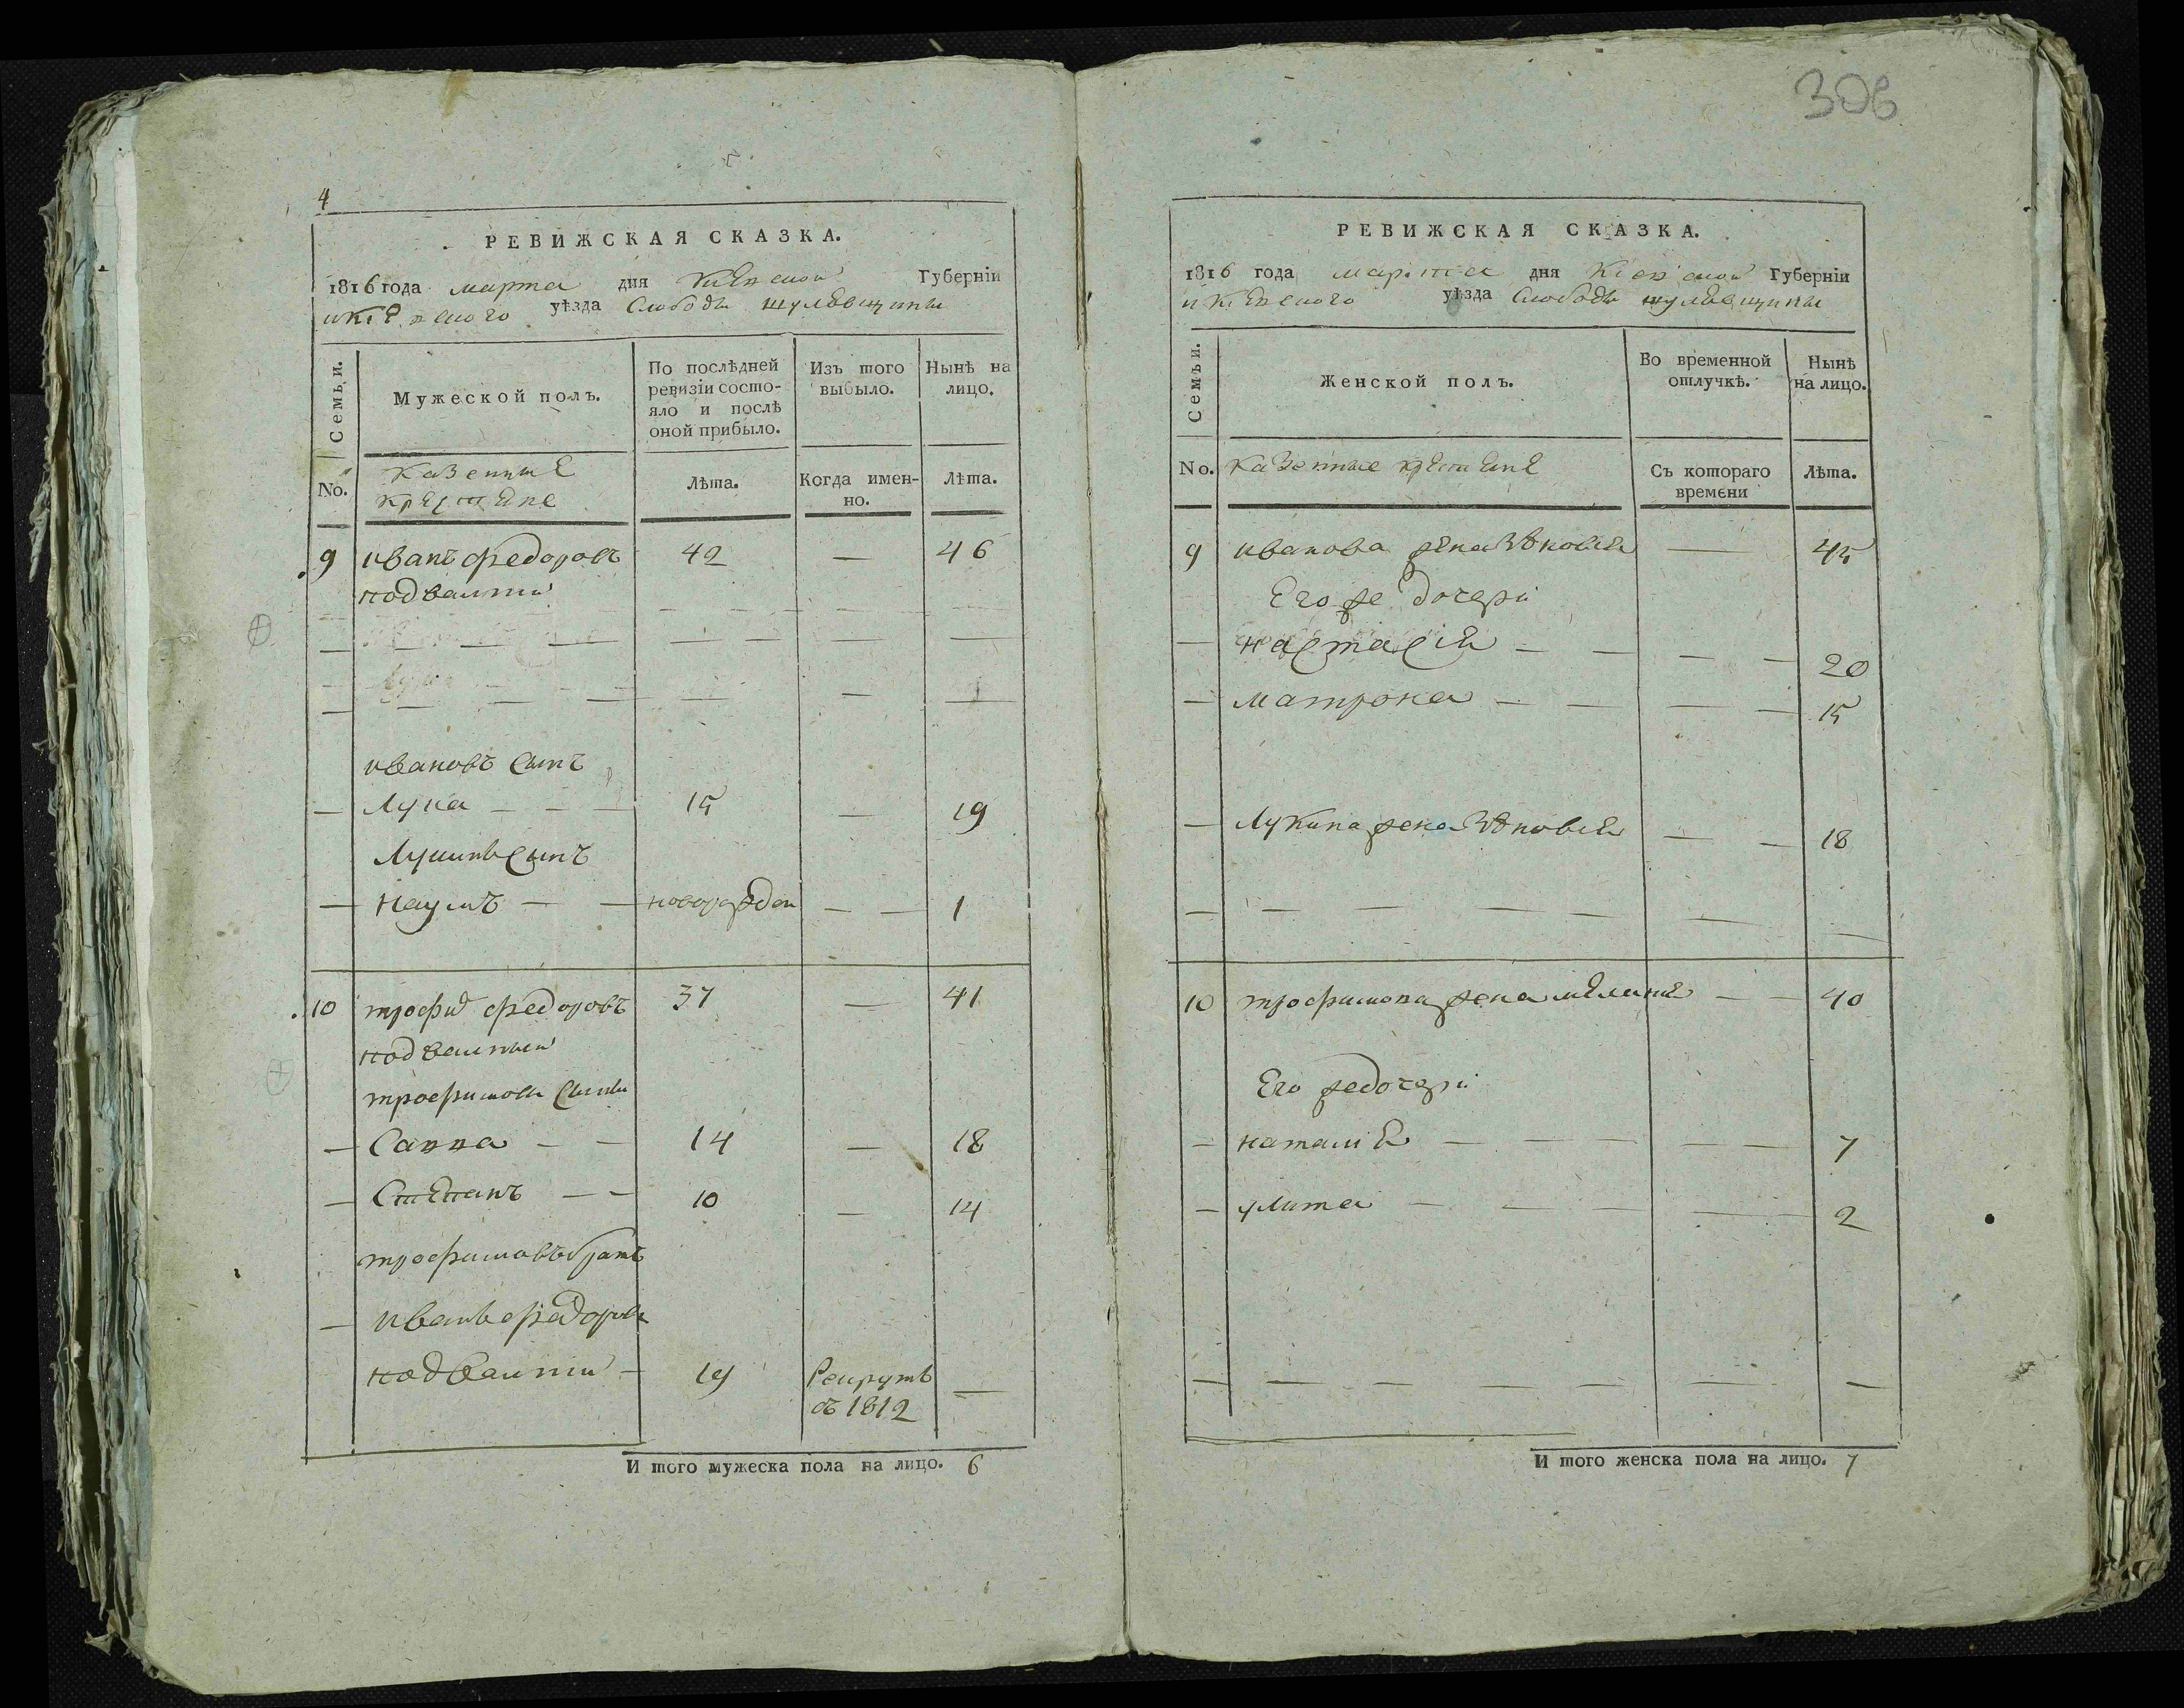 306
4
РЕВИЖСКАЯ СКАЗКА.
1816 года марта дня Кіевской Губерніи
и Кіевского уѣзда Слободы шулявщины
Семьи.
Мужеской полъ.
По послѣдней ревизіи состо-
яло и послѣ
оной прибыло.
Изъ того
выбыло.
Нынѣ на
лицо.
No.
Казенные
крестяне
Лѣта.
Когда имен-
но.
Лѣта.
9 иванъ федоровъ 42 — 46
подвалний
ивановъ сынъ
Лука — — 15 — 19
Лукинъ сынъ
наумъ — — новорожден — — 1
10 трофим федоровъ 37 — 41
подвалный
трофимовы сыны
Савва — — 14 — 18
Степанъ — — 10 — 14
трофимовъ братъ
иванъ федоровъ
подвалний — 19 Рекрутъ —
въ 1812
И того мужеска пола на лицо. 6
РЕВИЖСКАЯ СКАЗКА.
1816 года марта дня Кіевской Губерніи
и Кіевского уѣзда Слободы шулявщины
Семьи.
Женской полъ.
Во временной
отлучкѣ.
Нынѣ
на лицо.
No.
Казенные крестяне
Съ котораго
времени
Лѣта.
9 иванова жена Зѣновія — 45
Его же дочери
настасія — — — — 20
матрона — — — — 15
Лукина жена Зѣновія — — 18
10 трофимова жена — — 40
Его же дочери
наталія — — — — — 7
улита — — — — 2
И того женска пола на лицо. 7